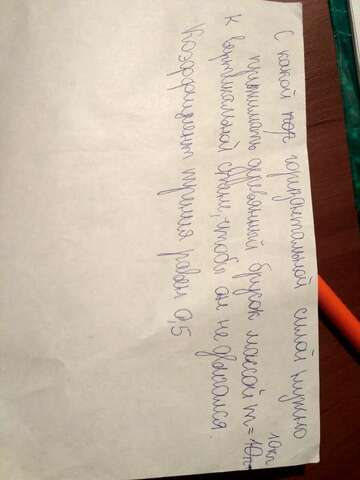 С какой горизонтальной силой нужно
прижимать деревянный брусок массой m = 10кг
к вертикальной стене, чтобы он не двигался.
Коэффициент трения равен 0,5